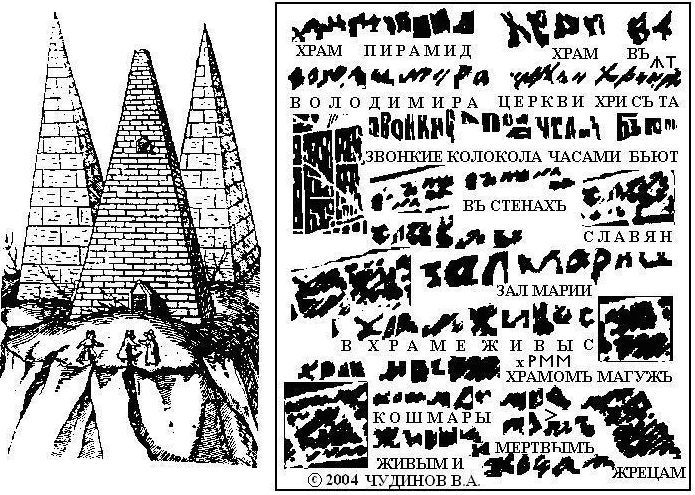 ХРАМ ПИРАМИД ХРАМ ВЪ
ВОЛОДИМИРА ЦЕРКВИ ХРИСЪТА
ЗВОНКИЕ КОЛОКОЛА ЧАСАМИ БЬЮТ
ВЪ СТЕНАХЪ
СЛАВЯН
ЗАЛ МАРИИ
В ХРАМЕ ЖИВЫ С
ХРАМОМЪ МАГУЖЪ
КОШМАРЫ
МЕРТВЫМЪ
ЖИВЫМ И
ЖРЕЦАМ
© 2004 ЧУДИНОВ В.А.